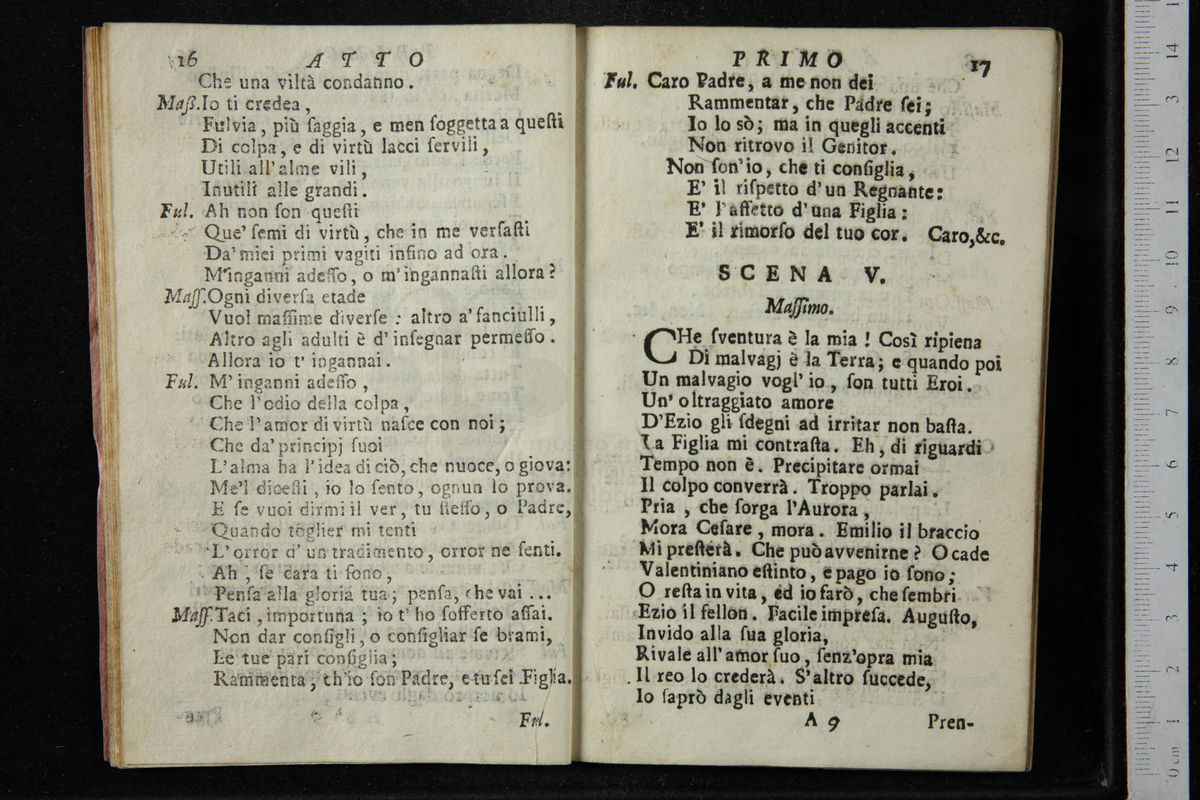 16 ATTO
Che una viltà condanno.
Maß. Io ti credea,
Fulvia, più ſaggia, e men ſoggetta a queſti
Di colpa, e di virtù lacci ſervili,
Utili all'alme vili,
Inutili alle grandi.
Ful. Ah non ſon queſti
Que' ſemi di virtù, che in me verſaſti
Da' miei primi vagiti infino ad ora.
M'inganni adeſſo, o m'ingannaſti allora?
Maſſ. Ogni diverſa etade
Vuol maſſime diverſe: altro a' fanciulli,
Altro agli adulti è d'inſegnar permeſſo.
Allora io t'ingannai.
Ful. M'inganni adeſſo,
Che l'odio della colpa,
Che l'amor di virtù naſce con noi;
Che da' principj ſuoi
L'alma ha l'idea di ciò, che nuoce, o giova:
Me'l diceſti, io lo ſento, ognun lo prova.
E ſe vuoi dirmi il ver, tu ſteſſo, o Padre,
Quando toglier mi tenti
L'orror d'un tradimento, orror ne ſenti.
Ah, ſe cara ti ſono,
Penſa alla gloria tua; penſa, che vai...
Maſſ. Taci, importuna; io t'ho ſofferto aſſai.
Non dar conſigli, o conſigliar ſe brami,
Le tue pari conſiglia;
Rammenta, ch'io ſon Padre, e tu ſei Figlia.
Ful.
PRIMO 17
Ful. Caro Padre, a me non dei
Rammentar, che Padre ſei;
Io lo sò; ma in quegli accenti
Non ritrovo il Genitor.
Non ſon'io, che ti conſiglia,
E' il riſpetto d'un Regnante:
E' l'affetto d'una Figlia:
E' il rimorſo del tuo cor. Caro,&c.
SCENA V.
Maſſimo.
CHe ſventura è la mia! Così ripiena
Di malvagj è la Terra; e quando poi
Un malvagio vogl'io, ſon tutti Eroi.
Un' oltraggiato amore
D'Ezio gli ſdegni ad irritar non baſta.
La Figlia mi contraſta. Eh, di riguardi
Tempo non è. Precipitare ormai
Il colpo converrà. Troppo parlai.
Pria, che ſorga l'Aurora,
Mora Ceſare, mora. Emilio il braccio
Mi preſterà. Che può avvenirne? O cade
Valentiniano eſtinto, e pago io ſono;
O reſta in vita, ed io farò, che ſembri
Ezio il fellon. Facile impreſa. Auguſto,
Invido alla ſua gloria,
Rivale all'amor ſuo, ſenz'opra mia
Il reo lo crederà. S'altro ſuccede,
Io ſaprò dagli eventi
A 9 Pren-